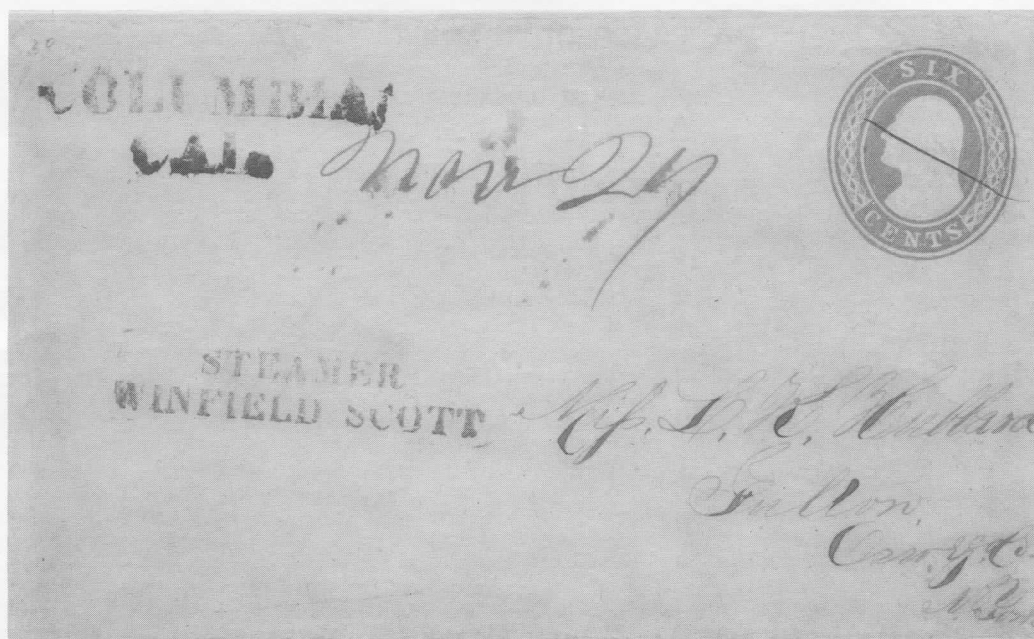 COLUMBIA
CAL.
Nov 29
SIX
CENTS
STEAMER
WINFIELD SCOTT
Miss. L. R. Hubbard
Fulton,
Osw.g.Co
N. York